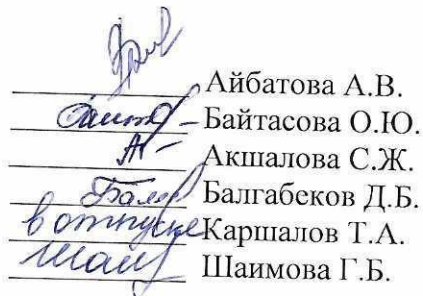 Айбатова А.В.
Байтасова О.Ю.
Акшалова С.Ж.
Балгабеков Д.Б.
в отпуске Каршалов Т.А.
Шаимова Г.Б.